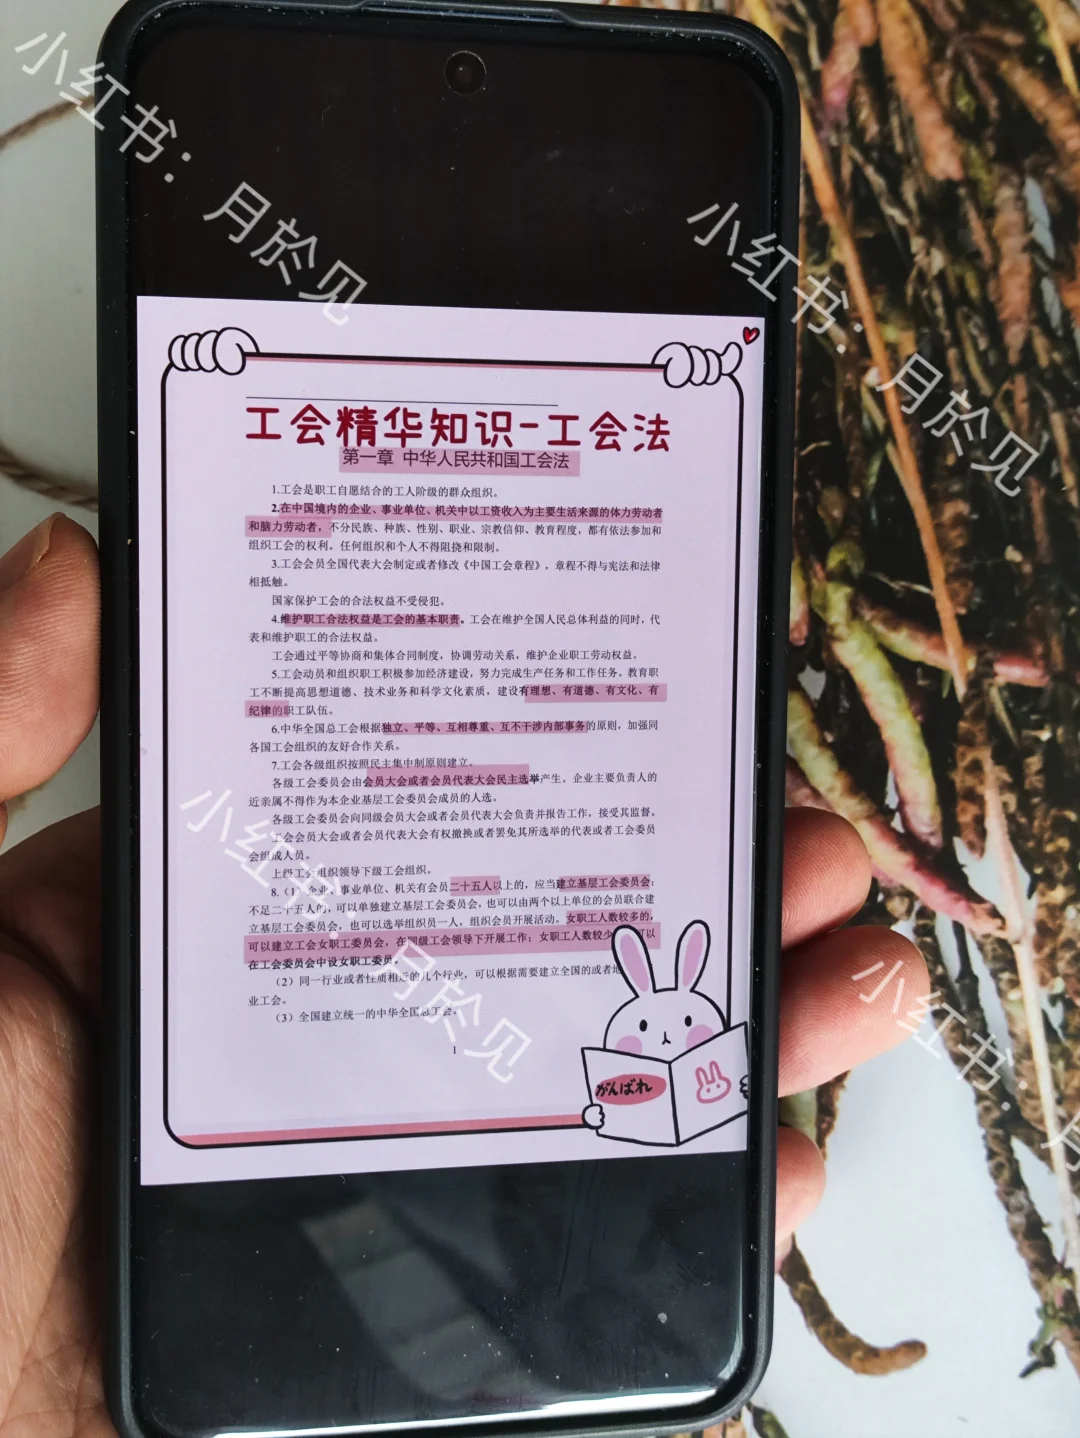 小红书：月於见
小红书：月於见
工会精华知识-工会法
第一章 中华人民共和国工会法
1.工会是职工自愿结合的工人阶级的群众组织。
2.在中国境内的企业、事业单位、机关中以工资收入为主要生活来源的体力劳动者
和脑力劳动者，不分民族、种族、性别、职业、宗教信仰、教育程度，都有依法参加和
组织工会的权利。任何组织和个人不得阻挠和限制。
3.工会会员全国代表大会制定或者修改《中国工会章程》，章程不得与宪法和法律
相抵触。
国家保护工会的合法权益不受侵犯。
4.维护职工合法权益是工会的基本职责。工会在维护全国人民总体利益的同时，代
表和维护职工的合法权益。
工会通过平等协商和集体合同制度，协调劳动关系，维护企业职工劳动权益。
5.工会动员和组织职工积极参加经济建设，努力完成生产任务和工作任务。教育职
工不断提高思想道德、技术业务和科学文化素质，建设有理想、有道德、有文化、有
纪律的职工队伍。
6.中华全国总工会根据独立、平等、互相尊重、互不干涉内部事务的原则，加强同
各国工会组织的友好合作关系。
7.工会各级组织按照民主集中制原则建立。
各级工会委员会由会员大会或者会员代表大会民主选举产生。企业主要负责人的
近亲属不得作为本企业基层工会委员会成员的人选。
各级工会委员会向同级会员大会或者会员代表大会负责并报告工作，接受其监督。
工会会员大会或者会员代表大会有权撤换或者罢免其所选举的代表或者工会委员
会组成人员。
上级工会组织领导下级工会组织。
8.（1）企业、事业单位、机关有会员二十五人以上的，应当建立基层工会委员会；
不足二十五人的，可以单独建立基层工会委员会，也可以由两个以上单位的会员联合建
立基层工会委员会，也可以选举组织员一人，组织会员开展活动。女职工人数较多的，
可以建立工会女职工委员会，在同级工会领导下开展工作；女职工人数较少 可以
在工会委员会中设女职工委员。
（2）同一行业或者性质相近的几个行业，可以根据需要建立全国的或者地
业工会。
（3）全国建立统一的中华全国总工会。
1
がんばれ
小红书：月於见
小红书：月